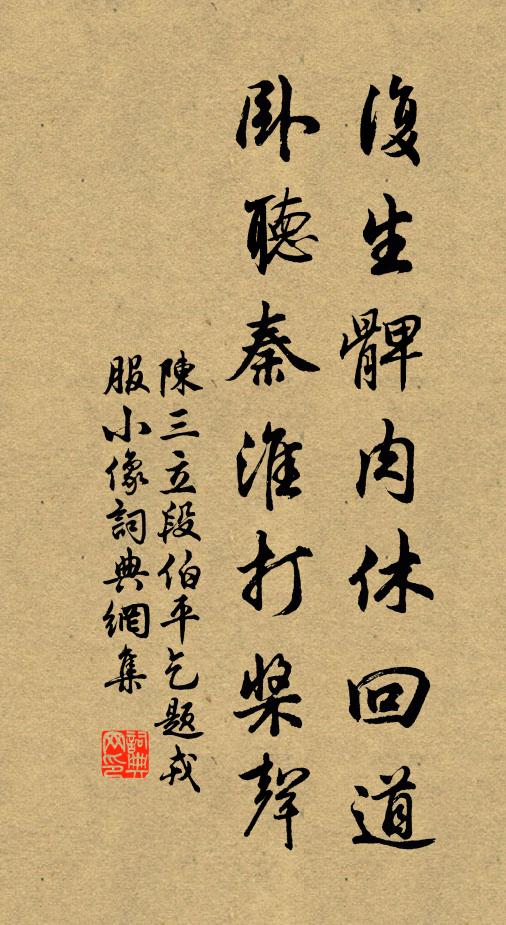 復生髀肉休回道
臥聽秦淮打槳聲
陳三立段伯平乞題戎
服小像詞典網集
詞典網印